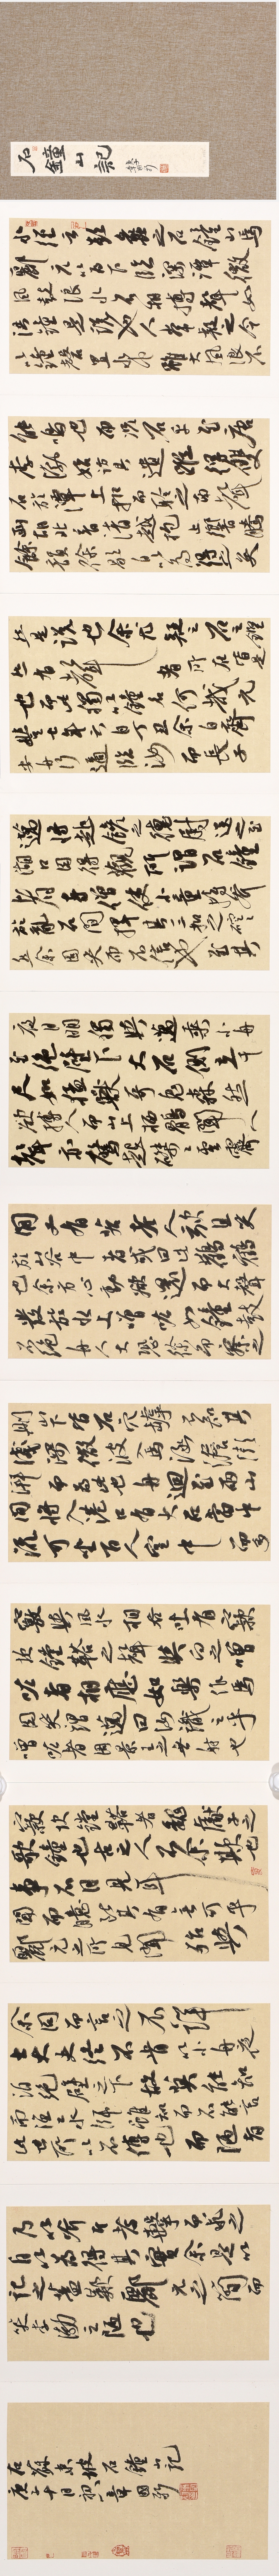 石鐘山記
水經云彭蠡之石鐘山焉
酈元以為下臨深潭微
風鼓浪水石相搏聲如
洪鐘是說也人常疑之今
以鐘磬置水中雖大風浪不
能鳴也而況石乎至唐
李渤始訪其遺蹤得雙
石於潭上扣而聆之南聲
函胡北音清越枹止響騰
餘韻徐歇自以為得之矣
然是說也余尤疑之石之鏗
然有聲者所在皆是
也而此獨以鐘名何哉元
豐七年六月丁丑余自齊
安舟行適臨汝而長子
邁將赴饒之德興尉送之至
湖口因得觀所謂石鐘
者寺僧使小童持斧
於亂石間擇其一二扣之硿硿
焉余固笑而不信也至其
夜月明獨與邁乘小舟
至絕壁下大石側立千
尺如猛獸奇鬼森然
欲搏人而山上棲鶻聞人
聲亦驚起磔磔雲霄
間又有若老人欬且笑
於山谷中者或曰此鸛鶴
也余方心動欲還而大聲
發於水上噌吰如鐘鼓
不絕舟人大恐徐而察之
則山下皆石穴罅不知其
淺深微波入焉涵澹澎
湃而為此也舟迴至兩山
間將入港口有大石當中
流可坐百人空中而多
竅與風水相吞吐有窾
坎鏜鞳之聲與向之噌
吰者相應如樂作焉
因笑謂邁曰汝識之乎
噌吰者周景王之無射也
窾坎鏜鞳者魏獻子之
歌鐘也古之人不余欺也
事不目見耳
聞而臆斷其有無可乎
酈元之所見聞殆與
余同而言之不詳
士大夫終不肯以小舟夜
泊絕壁之下故莫能知
而漁工水師雖知而不能言
此世所以不傳也而陋者
乃以斧斤考擊而求之
自以為得其實余是以
記之蓋歎酈元之簡而
笑李渤之陋也
右蘇東坡石鐘山記
庚子十月